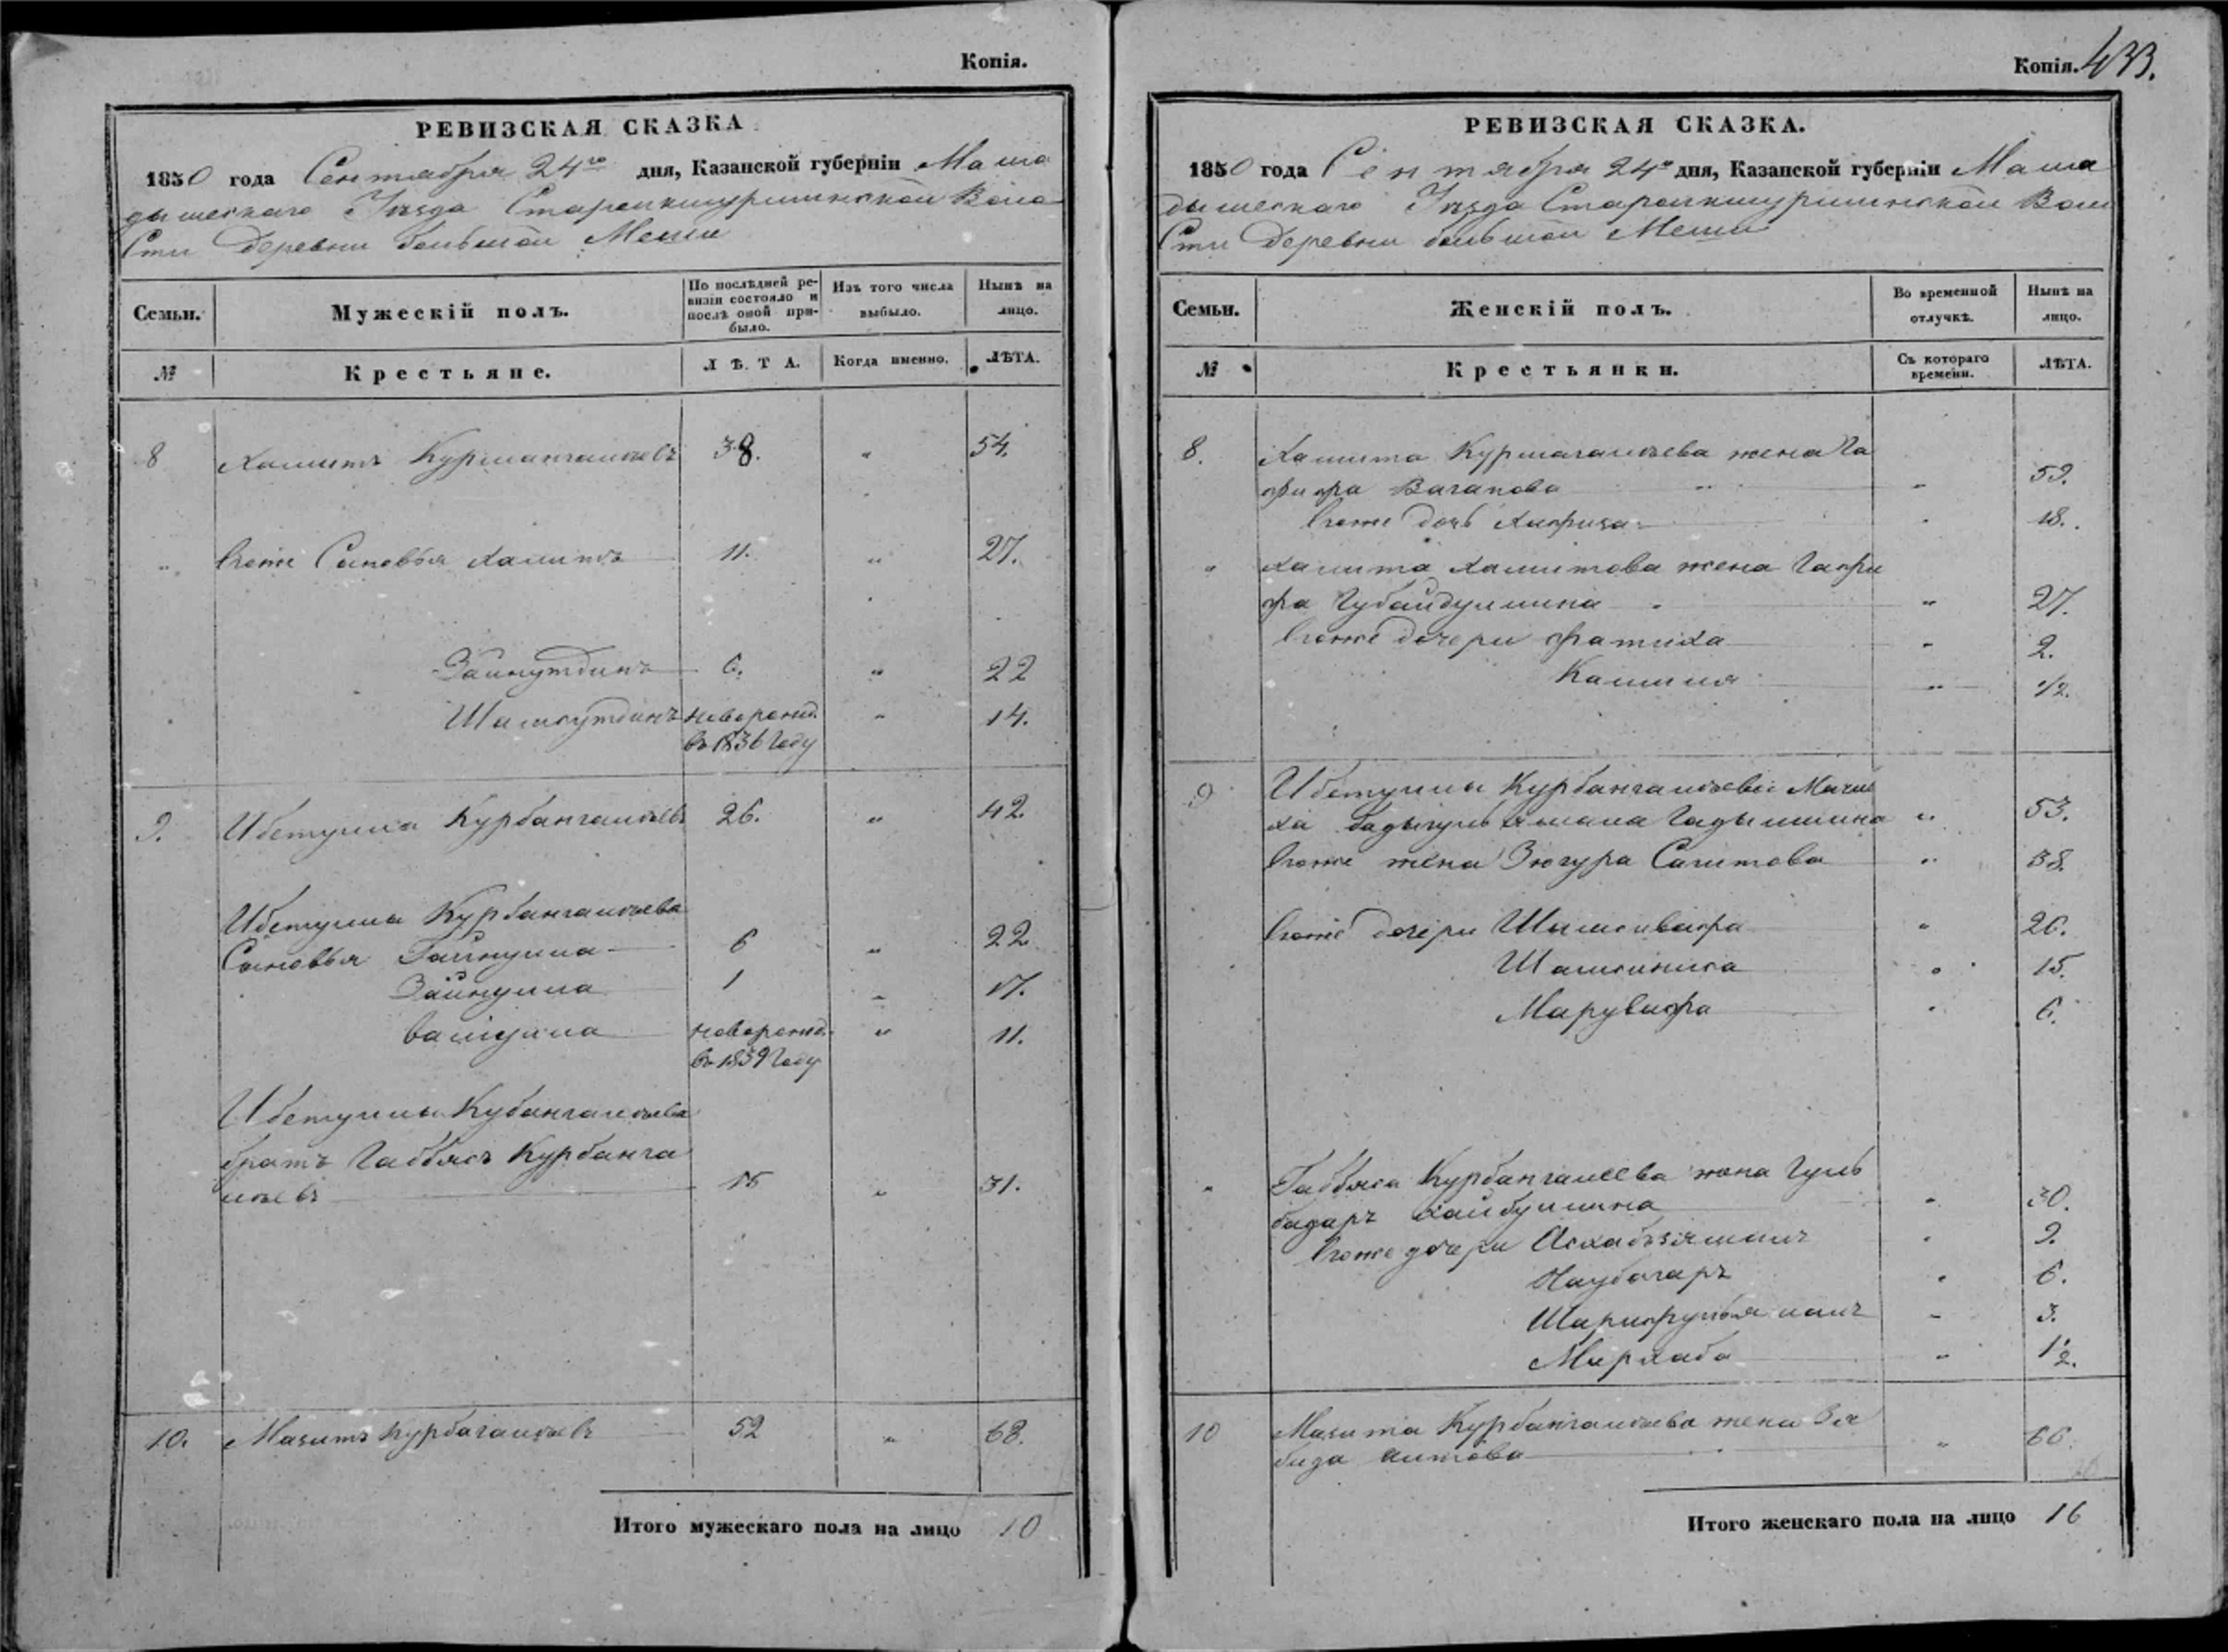 Копія.
РЕВИЗСКАЯ СКАЗКА
1850 года Сентября 24го дня, Казанской губерніи Мама
дышскаго Уѣзда Старокишурминской Воло
сти Деревни большой Меши
Семьи. Мужескій полъ. По послѣдней ре-
визіи состояло и
послѣ оной при-
было. Изъ того числа
выбыло. Нынѣ на
лицо.
№ Крестьяне. ЛѢТА. Когда именно. ЛѢТА.
8 Хамитъ Курмангалѣевъ 38. " 54.
" Его же Сыновья Халитъ 11. " 27.
Зайнутдинъ 6. " 22
Шамсутдинъ новорожд. " 14.
въ 1836 году
9. Ибетулла Курбангалѣевъ 26. " 42.
Ибетуллы Курбангалѣева
Сыновья Гайнулла 6 " 22
Зайнулла 1 " 17.
Валіулла новорожд. " 11.
въ 1839 году
Ибетуллы Кубангалѣева
братъ Габбясъ Курбанга
лѣевъ 15 " 31.
10. Мазитъ Курбагалѣевъ 52 " 68.
Итого мужескаго пола на лицо 10
Копія. 433.
РЕВИЗСКАЯ СКАЗКА.
1850 года Сентября 24го дня, Казанской губерніи Мама
дышскаго Уѣзда Старокишурминской Воло
сти Деревни большой Меши
Семьи. Женскій полъ. Во временной
отлучкѣ. Нынѣ на
лицо.
№ Крестьянки. Съ котораго
времени. ЛѢТА.
8. Хамита Курмагалѣева жена Га
фифа Вагапова " 52.
Его же дочь Хафиза " 18.
" Халита Хамитова жена Гафи
фа Губайдуллина " 27.
Его же дочери Фатиха " 2.
Камиля " 1/2.
9 Ибетуллы Курбангалѣева Мачи
ха бадыгульямала Гадыльшина " 53.
Его же жена Зюгура Сагитова " 38.
Его же дочери Шамсивафа " 20.
Шамсиниса " 15.
Марувафа " 6.
" Габбяса Курбангалеева жена Гуль
бадаръ Хайбуллина " 30.
Его же дочери Асхабзяманъ " 9.
Наубагаръ " 6.
Шарифульяманъ " 3.
Мархаба " 1/2.
10 Мазита Курбангалѣева жена Зя
бида Аитова " 66.
Итого женскаго пола на лицо 16